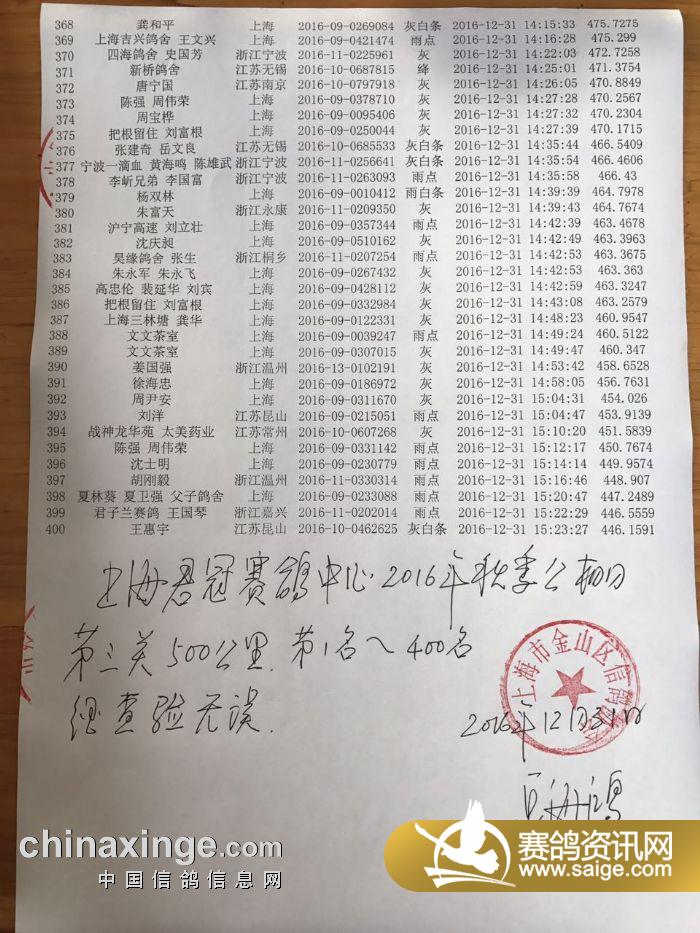 368 龚和平 上海 2016-09-0269084 灰白条 2016-12-31 14:15:33 475.7275
369 上海吉兴鸽舍 王文兴 上海 2016-09-0421474 雨点 2016-12-31 14:16:28 475.299
370 四海鸽舍 史国芳 浙江宁波 2016-11-0225961 灰 2016-12-31 14:22:03 472.7258
371 新桥鸽舍 江苏无锡 2016-10-0687815 绛 2016-12-31 14:25:01 471.3754
372 唐宁国 江苏南京 2016-10-0797918 灰 2016-12-31 14:26:05 470.8849
373 陈强 周伟荣 上海 2016-09-0378710 灰 2016-12-31 14:27:28 470.2567
374 周宝桦 上海 2016-09-0095406 灰 2016-12-31 14:27:32 470.2304
375 把根留住 刘富根 上海 2016-09-0250044 灰 2016-12-31 14:27:39 470.1715
376 张建奇 岳文良 江苏无锡 2016-10-0685533 灰白条 2016-12-31 14:35:44 466.5409
377 宁波一滴血 黄海鸣 陈雄武 浙江宁波 2016-11-0256641 灰白条 2016-12-31 14:35:54 466.4606
378 李昕兄弟 李国富 浙江宁波 2016-11-0263093 雨点 2016-12-31 14:35:58 466.43
379 杨双林 上海 2016-09-0010412 雨白条 2016-12-31 14:39:39 464.7978
380 朱富天 浙江永康 2016-11-0209350 灰 2016-12-31 14:39:43 464.7674
381 沪宁高速 刘立壮 上海 2016-09-0357344 雨点 2016-12-31 14:42:39 463.4678
382 沈庆昶 上海 2016-09-0510162 灰 2016-12-31 14:42:49 463.3963
383 昊缘鸽舍 张生 浙江桐乡 2016-11-0207254 雨点 2016-12-31 14:42:53 463.3675
384 朱永军 朱永飞 上海 2016-09-0267432 灰 2016-12-31 14:42:53 463.363
385 高忠伦 裴延华 刘宾 上海 2016-09-0428112 灰 2016-12-31 14:42:59 463.3247
386 把根留住 刘富根 上海 2016-09-0332984 灰 2016-12-31 14:43:08 463.2579
387 上海三林塘 龚华 上海 2016-09-0122331 灰 2016-12-31 14:48:23 460.9547
388 文文茶室 上海 2016-09-0039247 雨点 2016-12-31 14:49:24 460.5122
389 文文茶室 上海 2016-09-0307015 灰 2016-12-31 14:49:47 460.347
390 姜国强 浙江温州 2016-13-0102191 灰 2016-12-31 14:53:42 458.6528
391 徐海忠 上海 2016-09-0186972 灰 2016-12-31 14:58:05 456.7631
392 周尹安 上海 2016-09-0311670 灰 2016-12-31 15:04:31 454.026
393 刘洋 江苏昆山 2016-09-0215051 雨点 2016-12-31 15:04:47 453.9139
394 战神龙华苑 太美药业 江苏常州 2016-10-0607268 灰 2016-12-31 15:10:20 451.5839
395 陈强 周伟荣 上海 2016-09-0331142 雨点 2016-12-31 15:12:17 450.7674
396 沈士明 上海 2016-09-0230779 雨点 2016-12-31 15:14:14 449.9574
397 胡刚毅 浙江温州 2016-11-0330314 雨点 2016-12-31 15:16:46 448.907
398 夏林葵 夏卫强 父子鸽舍 上海 2016-09-0233088 雨点 2016-12-31 15:20:47 447.2489
399 君子兰赛鸽 王国琴 浙江嘉兴 2016-11-0202014 雨点 2016-12-31 15:22:29 446.5559
400 王惠宇 江苏昆山 2016-10-0462625 灰白条 2016-12-31 15:23:27 446.1591
上海君冠赛鸽中心2016年秋季公棚
第三关500公里.第1名~400名
经查验无误.
上海市金山区信鸽
2016年12月31日
chinaxinge.com
中国信鸽信息网
赛鸽资讯网
www.saige.com